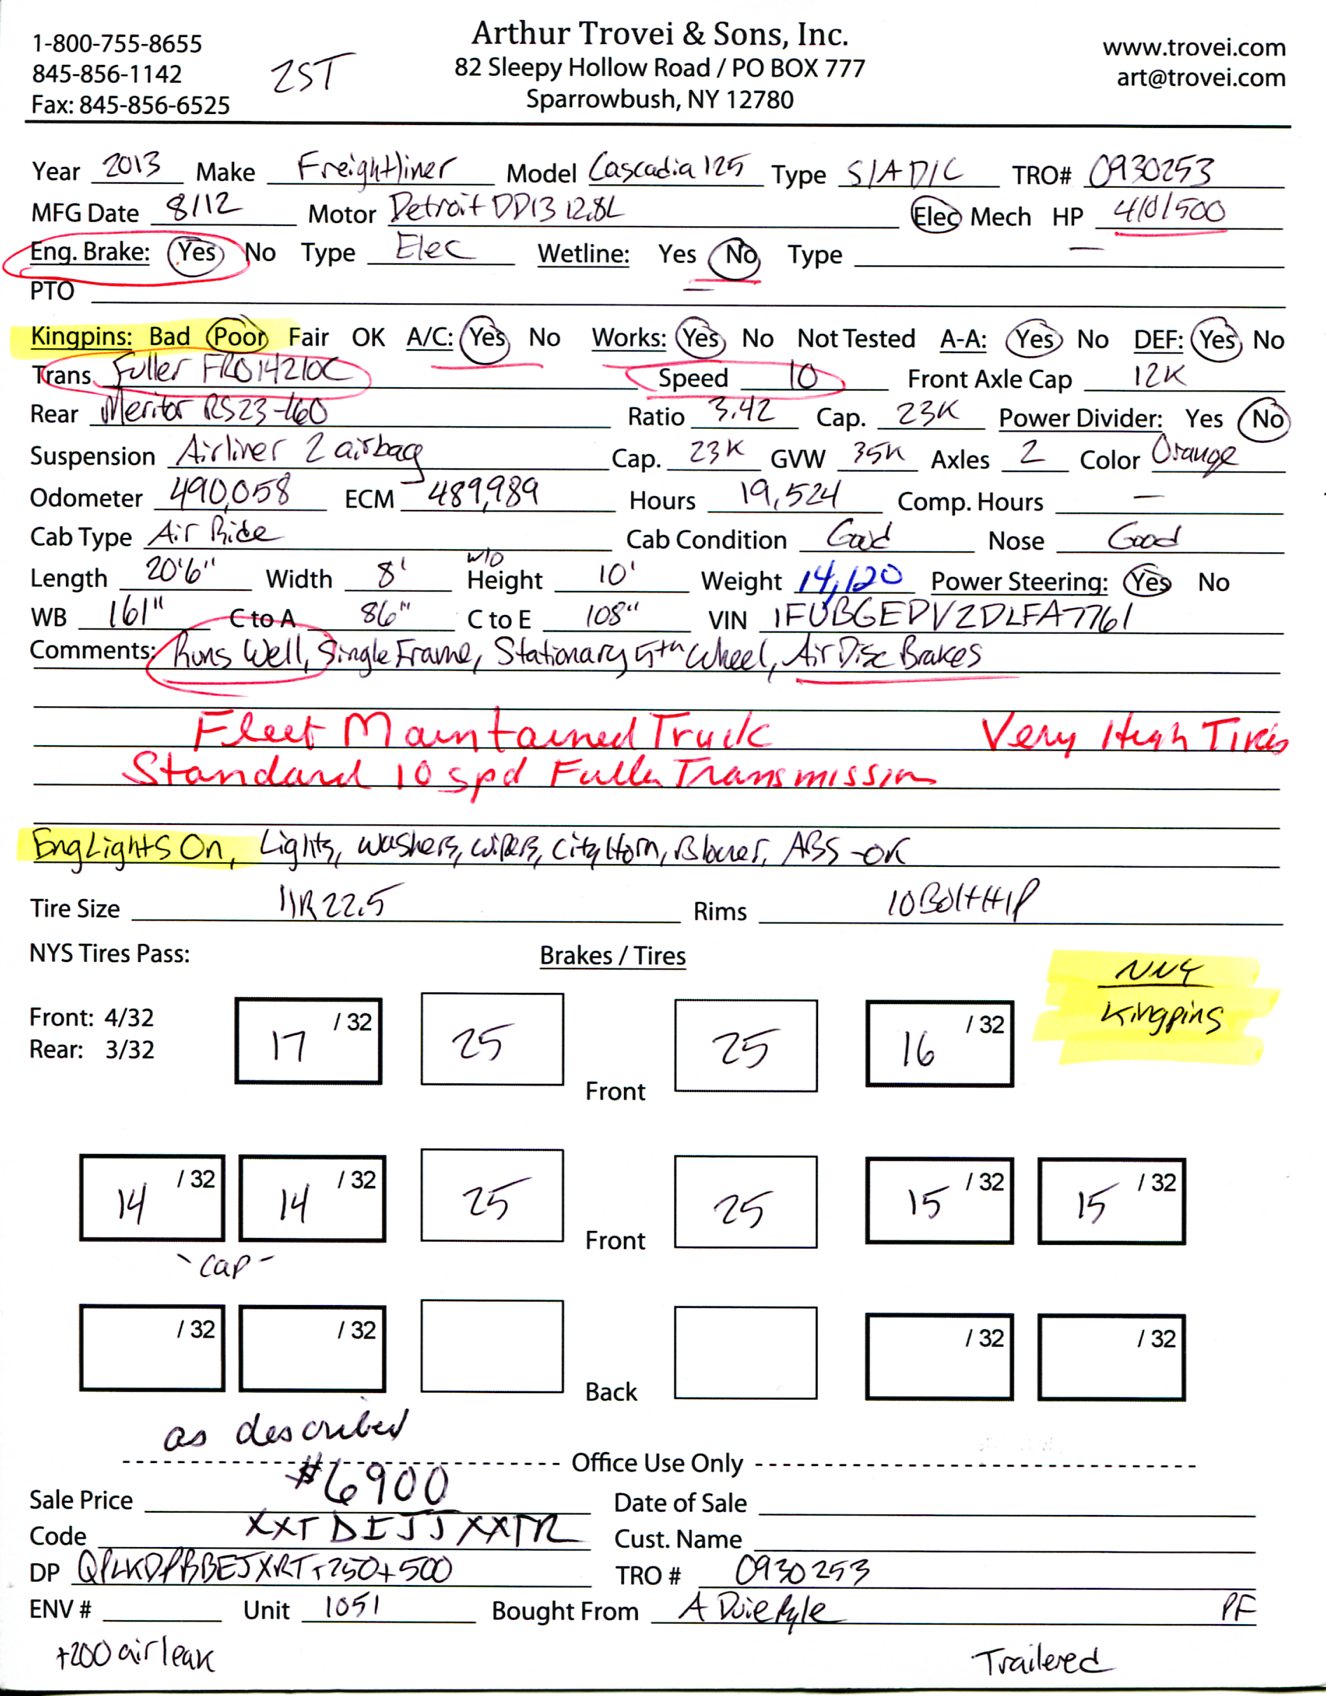 Arthur Trovei & Sons, Inc.
1-800-755-8655 82 Sleepy Hollow Road / PO BOX 777 www.trovei.com
845-856-1142 2ST Sparrowbush, NY 12780 art@trovei.com
Fax: 845-856-6525
Year 2013 Make Freightliner Model Cascadia 125 Type S/A D/C TRO# 0930253
MFG Date 8/12 Motor Detroit DD13 12.8L Elec Mech HP 410/500
Eng. Brake: Yes No Type Elec Wetline: Yes No Type
PTO
Kingpins: Bad Poor Fair OK A/C: Yes No Works: Yes No Not Tested A-A: Yes No DEF: Yes No
Trans Fuller FRO14210C Speed 10 Front Axle Cap 12K
Rear Meritor RS23-160 Ratio 3.42 Cap. 23K Power Divider: Yes No
Suspension Airliner 2 airbag Cap. 23K GVW 35K Axles 2 Color Orange
Odometer 490,058 ECM 489,989 Hours 19,524 Comp. Hours —
Cab Type Air Ride Cab Condition Good Nose Good
Length 20'6" Width 8' w/o Height 10' Weight 14,120 Power Steering: Yes No
WB 161" C to A 86" C to E 108" VIN 1FUBGEDV2DLFA7761
Comments: Runs Well, Single Frame, Stationary 5th Wheel, Air Disc Brakes
Fleet Maintained Truck Very High Tires
Standard 10 spd Fuller Transmission
Eng Lights On, Lights, washers, wipers, City Horn, Blower, ABS -OK
Tire Size 11R22.5 Rims 10 Bolt H/P
NYS Tires Pass: Brakes / Tires NNY
Kingpins
Front: 4/32 17 /32 25 25 16 /32
Rear: 3/32
Front
14 /32 14 /32 25 25 15 /32 15 /32
Front
-cap-
/32 /32 /32 /32
Back
as described
Office Use Only
Sale Price $6900 Date of Sale
Code XXTDEJJXXTR Cust. Name
DP QPLKDPBBEJXRT+250+500 TRO # 0930253
ENV # Unit 1051 Bought From A Duie Pyle PF
+200 air leak Trailered